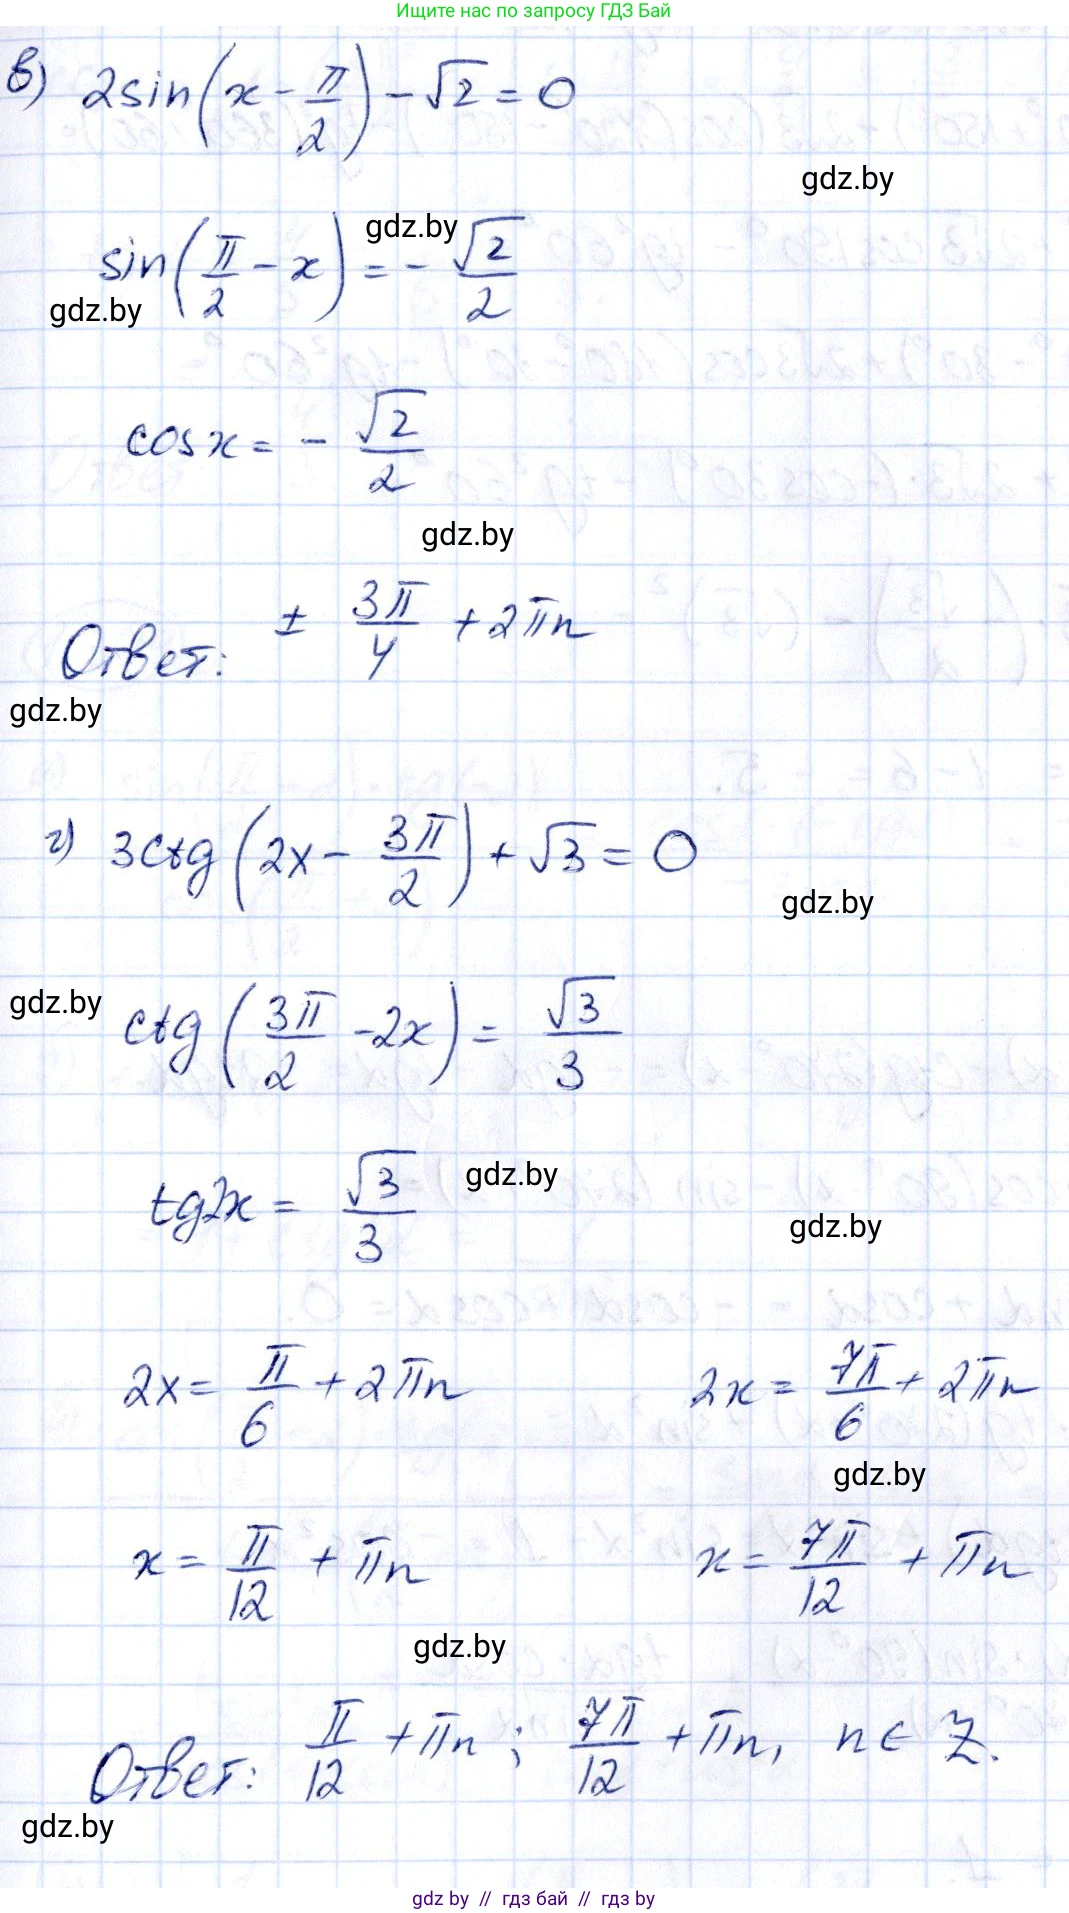 Ищите нас по запросу ГДЗ Бай
в) 2sin(x - π/2) - √2 = 0
gdz.by
gdz.by
sin(π/2 - x) = - √2/2
gdz.by
cosx = - √2/2
gdz.by
Ответ: ± 3π/4 + 2πn
gdz.by
г) 3ctg(2x - 3π/2) + √3 = 0
gdz.by
gdz.by
ctg(3π/2 - 2x) = √3/3
gdz.by
tg2x = √3/3
gdz.by
2x = π/6 + 2πn 2x = 7π/6 + 2πn
gdz.by
x = π/12 + πn x = 7π/12 + πn
gdz.by
Ответ: π/12 + πn ; 7π/12 + πn, n ∈ Z.
gdz.by
gdz by // гдз бай // гдз by